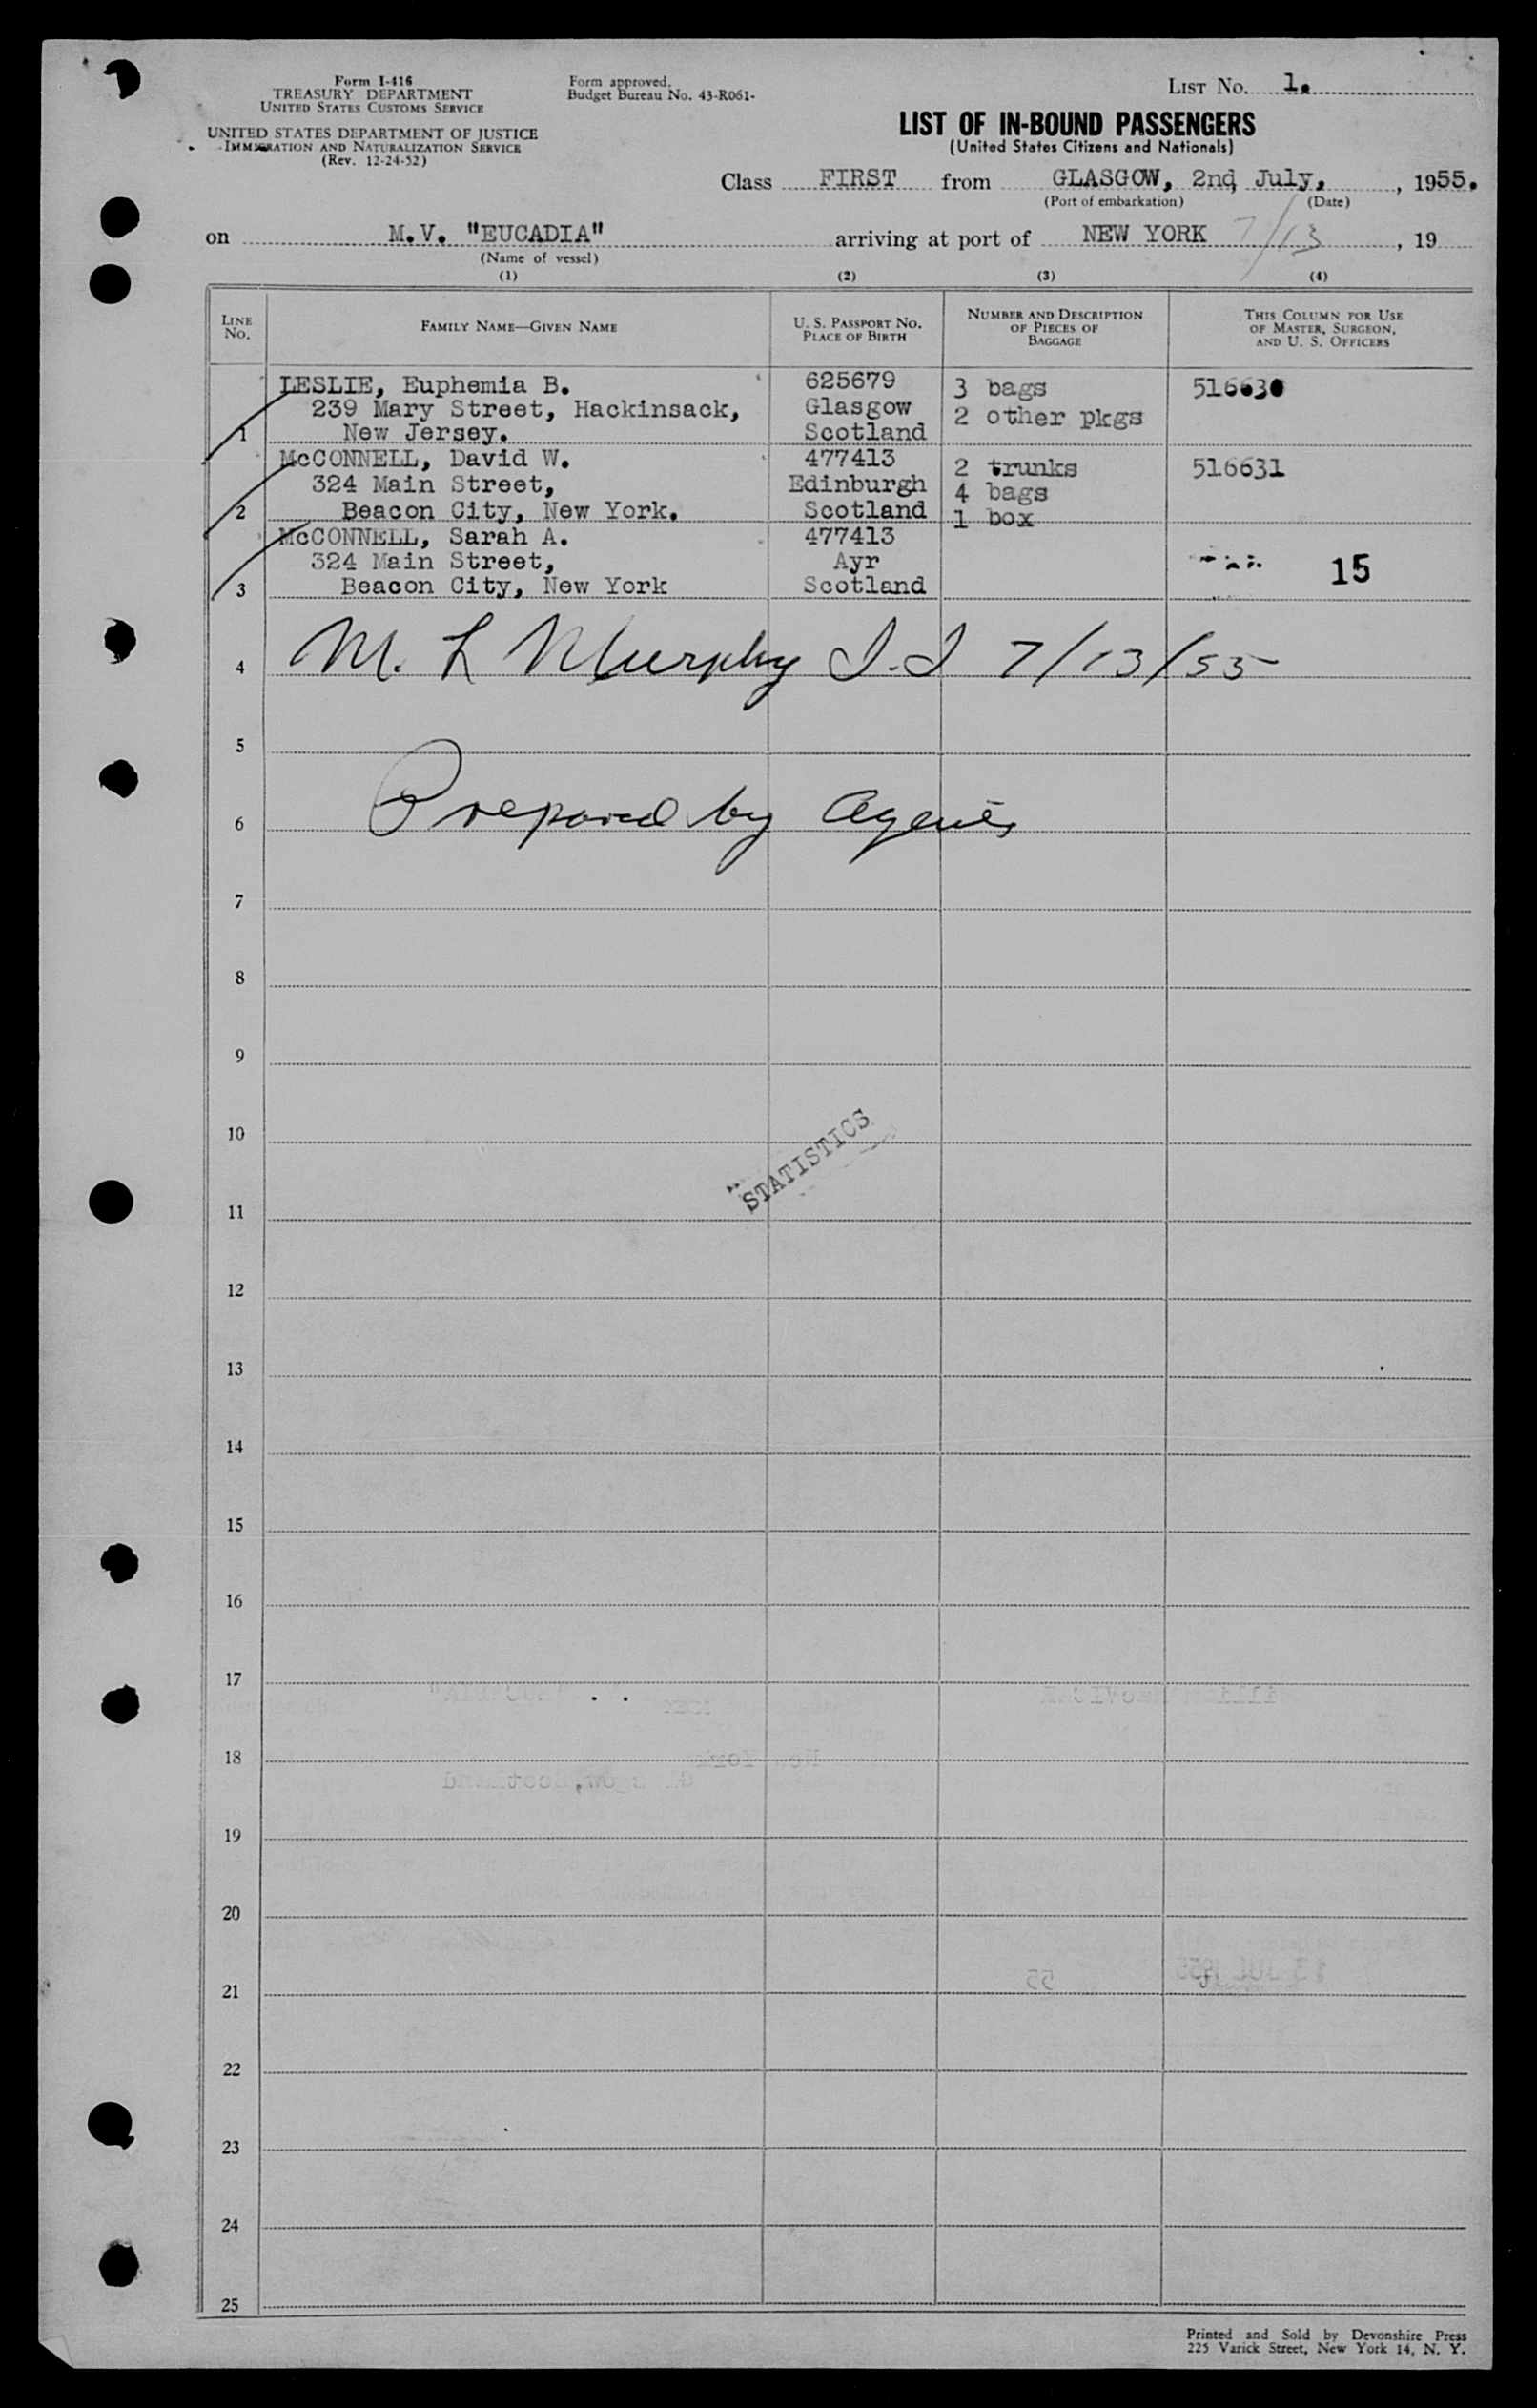 Form I-416
TREASURY DEPARTMENT
UNITED STATES CUSTOMS SERVICE
UNITED STATES DEPARTMENT OF JUSTICE
IMMIGRATION AND NATURALIZATION SERVICE
(Rev. 12-24-52)
Form approved.
Budget Bureau No. 43-R061-
LIST No. 1.
LIST OF IN-BOUND PASSENGERS
(United States Citizens and Nationals)
Class FIRST from GLASGOW, 2nd July, , 1955.
(Port of embarkation) (Date)
on M.V. "EUCADIA" arriving at port of NEW YORK 7/13 , 19
(Name of vessel)
(1) (2) (3) (4)
LINE No. FAMILY NAME—GIVEN NAME U. S. PASSPORT NO. PLACE OF BIRTH NUMBER AND DESCRIPTION OF PIECES OF BAGGAGE THIS COLUMN FOR USE OF MASTER, SURGEON, AND U. S. OFFICERS
LESLIE, Euphemia B. 625679 3 bags 516630
239 Mary Street, Hackinsack, Glasgow 2 other pkgs
1 New Jersey. Scotland
McCONNELL, David W. 477413 2 trunks 516631
324 Main Street, Edinburgh 4 bags
2 Beacon City, New York. Scotland 1 box
McCONNELL, Sarah A. 477413
324 Main Street, Ayr 15
3 Beacon City, New York Scotland
4 M. L Murphy I.I 7/13/55
5
6 Prepared by Agents
7
8
9
10
STATISTICS
11
12
13
14
15
16
17
18
19
20
21
22
23
24
25
Printed and Sold by Devonshire Press
225 Varick Street, New York 14, N. Y.